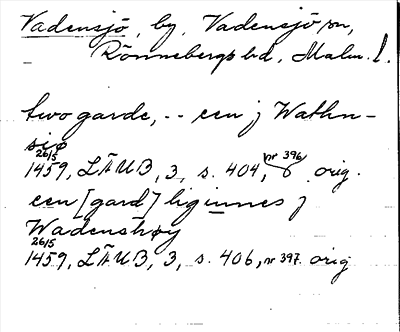 Vadensjö, by, Vadensjö sn,
Rönnebergs hd, Malm. l.
two garde, -- een j Wathn-
siø
26/5
1459, LÄUB, 3, s. 404, nr 396, orig.
een [gard] liginnes j
Wadenshøy
26/5
1459, LÄUB, 3, s. 406, nr 397. orig